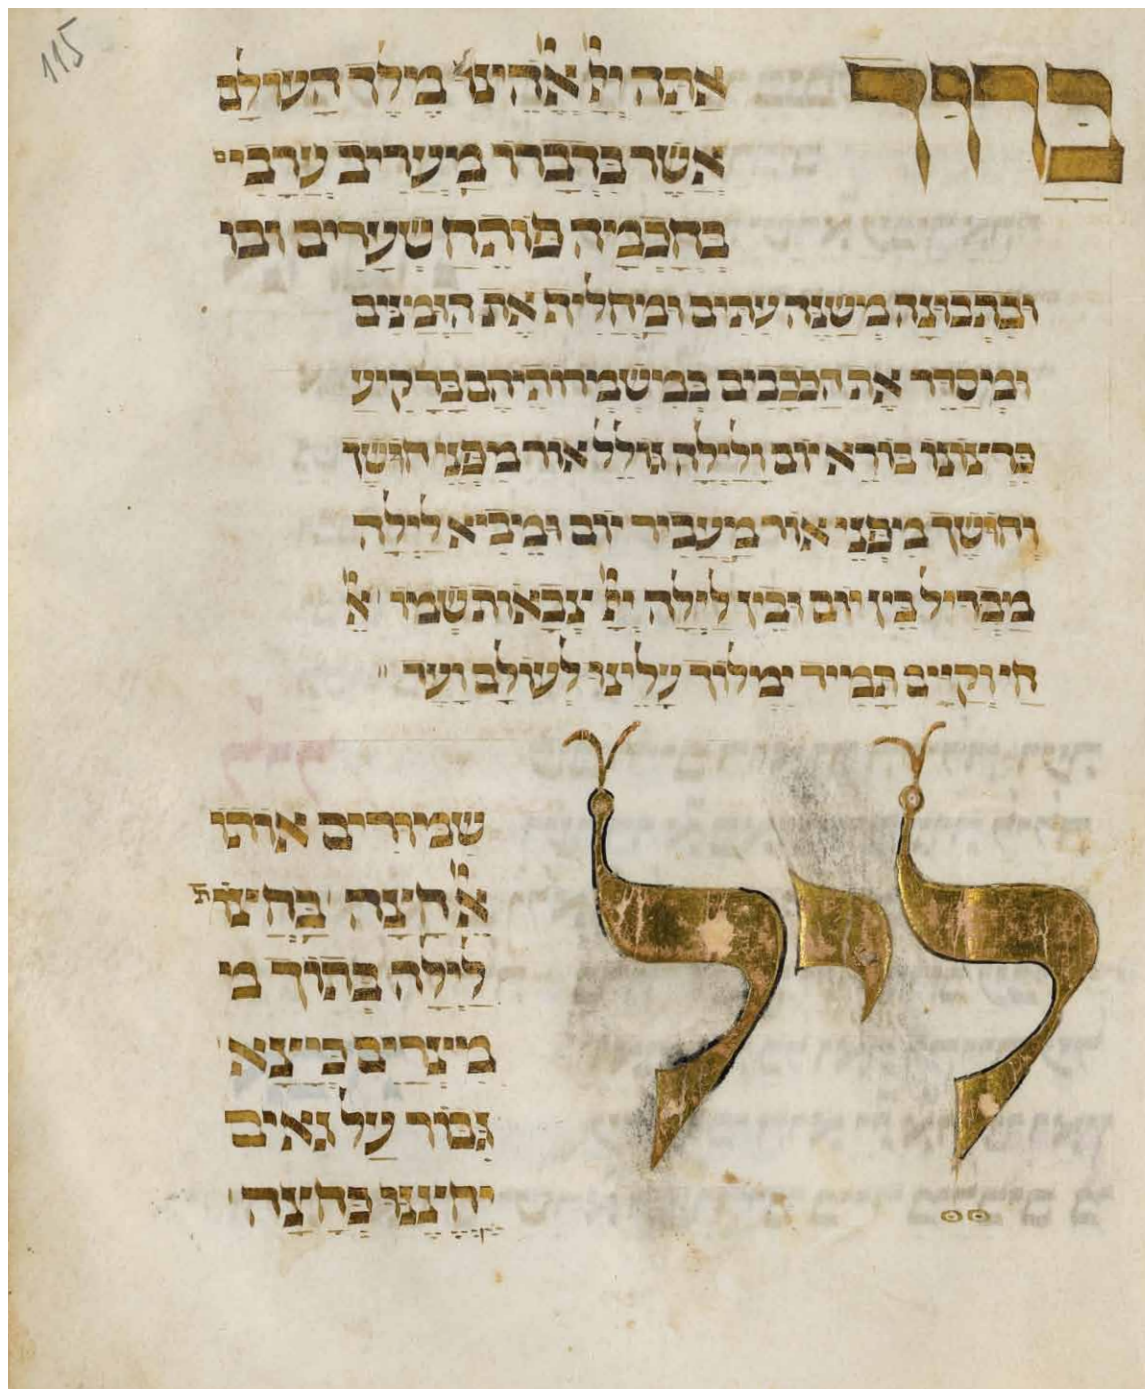 115
ברוך אתה יי אלהינו מלך העולם
אשר בדברו מעריב ערבי
בחכמה פותח שערים ובו
ובתבונה משנה עתים ומחליף את הזמנים
ומסדר את הככבים במשמרותיהם ברקיע
כרצונו בורא יום ולילה גולל אור מפני חושך
וחושך מפני אור מעביר יום ומביא לילה
מבדיל בין יום ובין לילה יי צבאות שמו א
חי וקיים תמיד ימלוך עלינו לעולם ועד
ליל שמורים אותו
א חצה בחצות
לילה בתוך מ
מצרים כיצא
גבור על גאים
יחיצנו כחצה